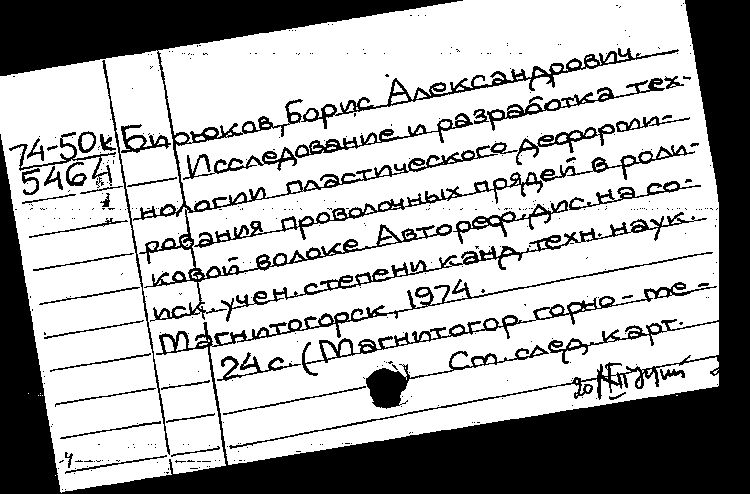 74-50к
5464
Бирюков, Борис Александрович.
Исследование и разработка тех-
нологии пластического деформи-
рования проволочных прядей в роли-
ковой волоке. Автореф. дис. на со-
иск. учен. степени канд. техн. наук.
Магнитогорск, 1974.
24 с. (Магнитогор. горно-ме-
См. след. карт.
20/XII